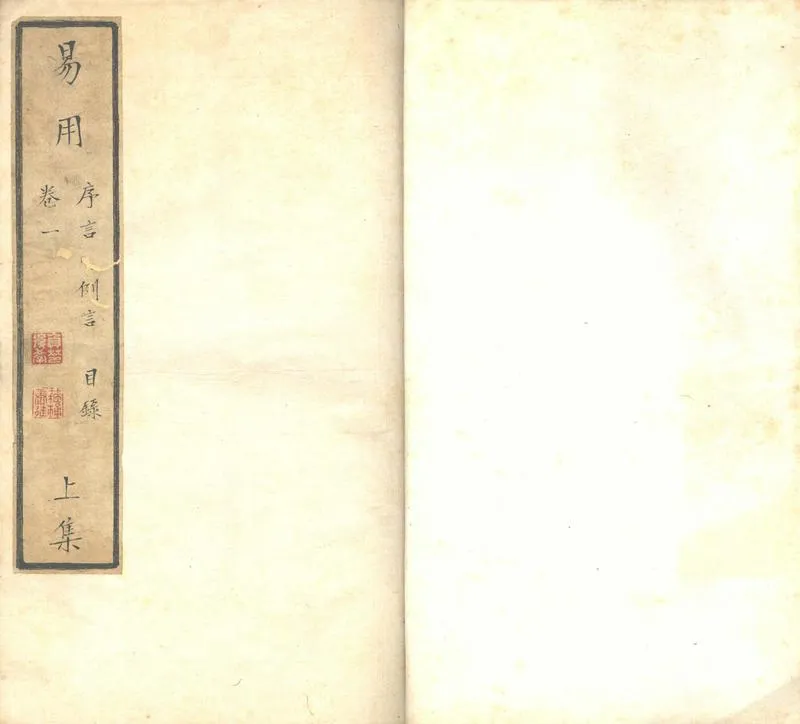 易用
序言 例言 目錄
卷一
上集